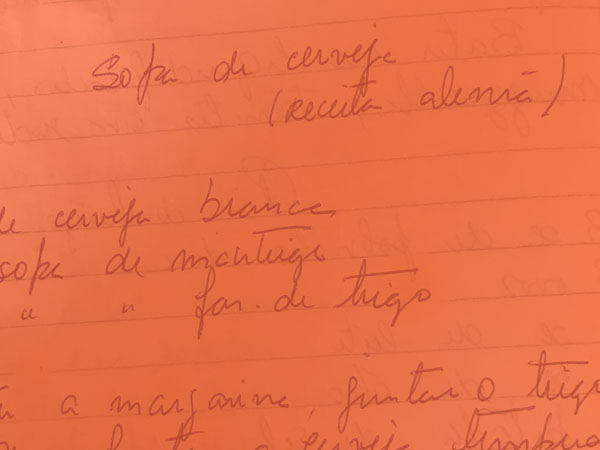 Sopa de cerveja
(receita alemã)
de cerveja branca
sopa de manteiga
" " far. de trigo
a margarina, juntar o trigo
a cerveja